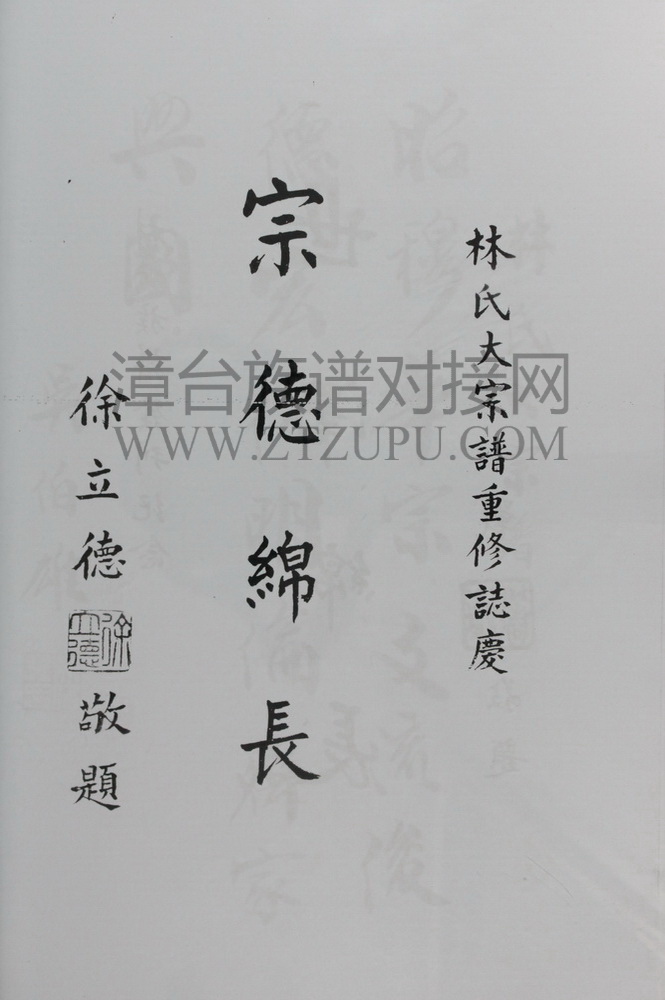 林氏大宗譜重修誌慶
宗德綿長
徐立德
徐立德
敬題
漳台族谱对接网
WWW.ZTZUPU.COM